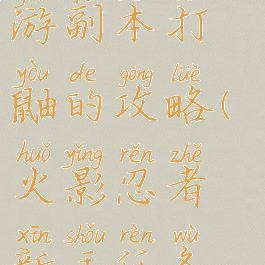 游副本打
yòu de gōng lüè
鼬的攻略(
huǒ yǐng rěn zhě
火影忍者
xīn shǒu rèn wù
新手任务